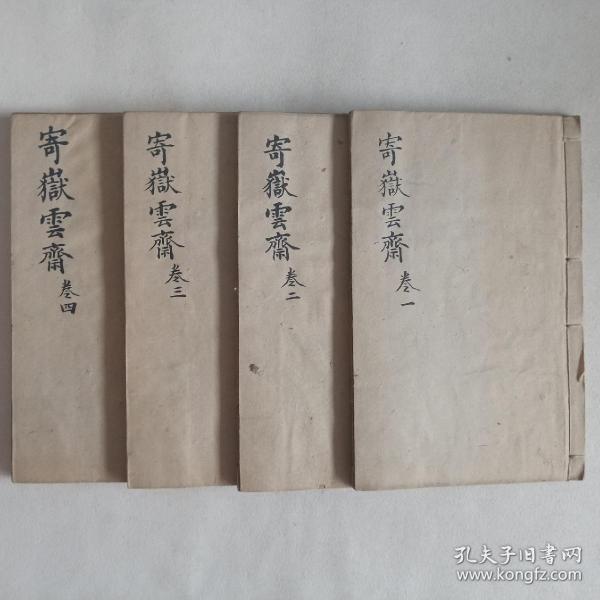 寄嶽雲齋 卷一
寄嶽雲齋 卷二
寄嶽雲齋 卷三
寄嶽雲齋 卷四
孔夫子旧书网
www.kongfz.com